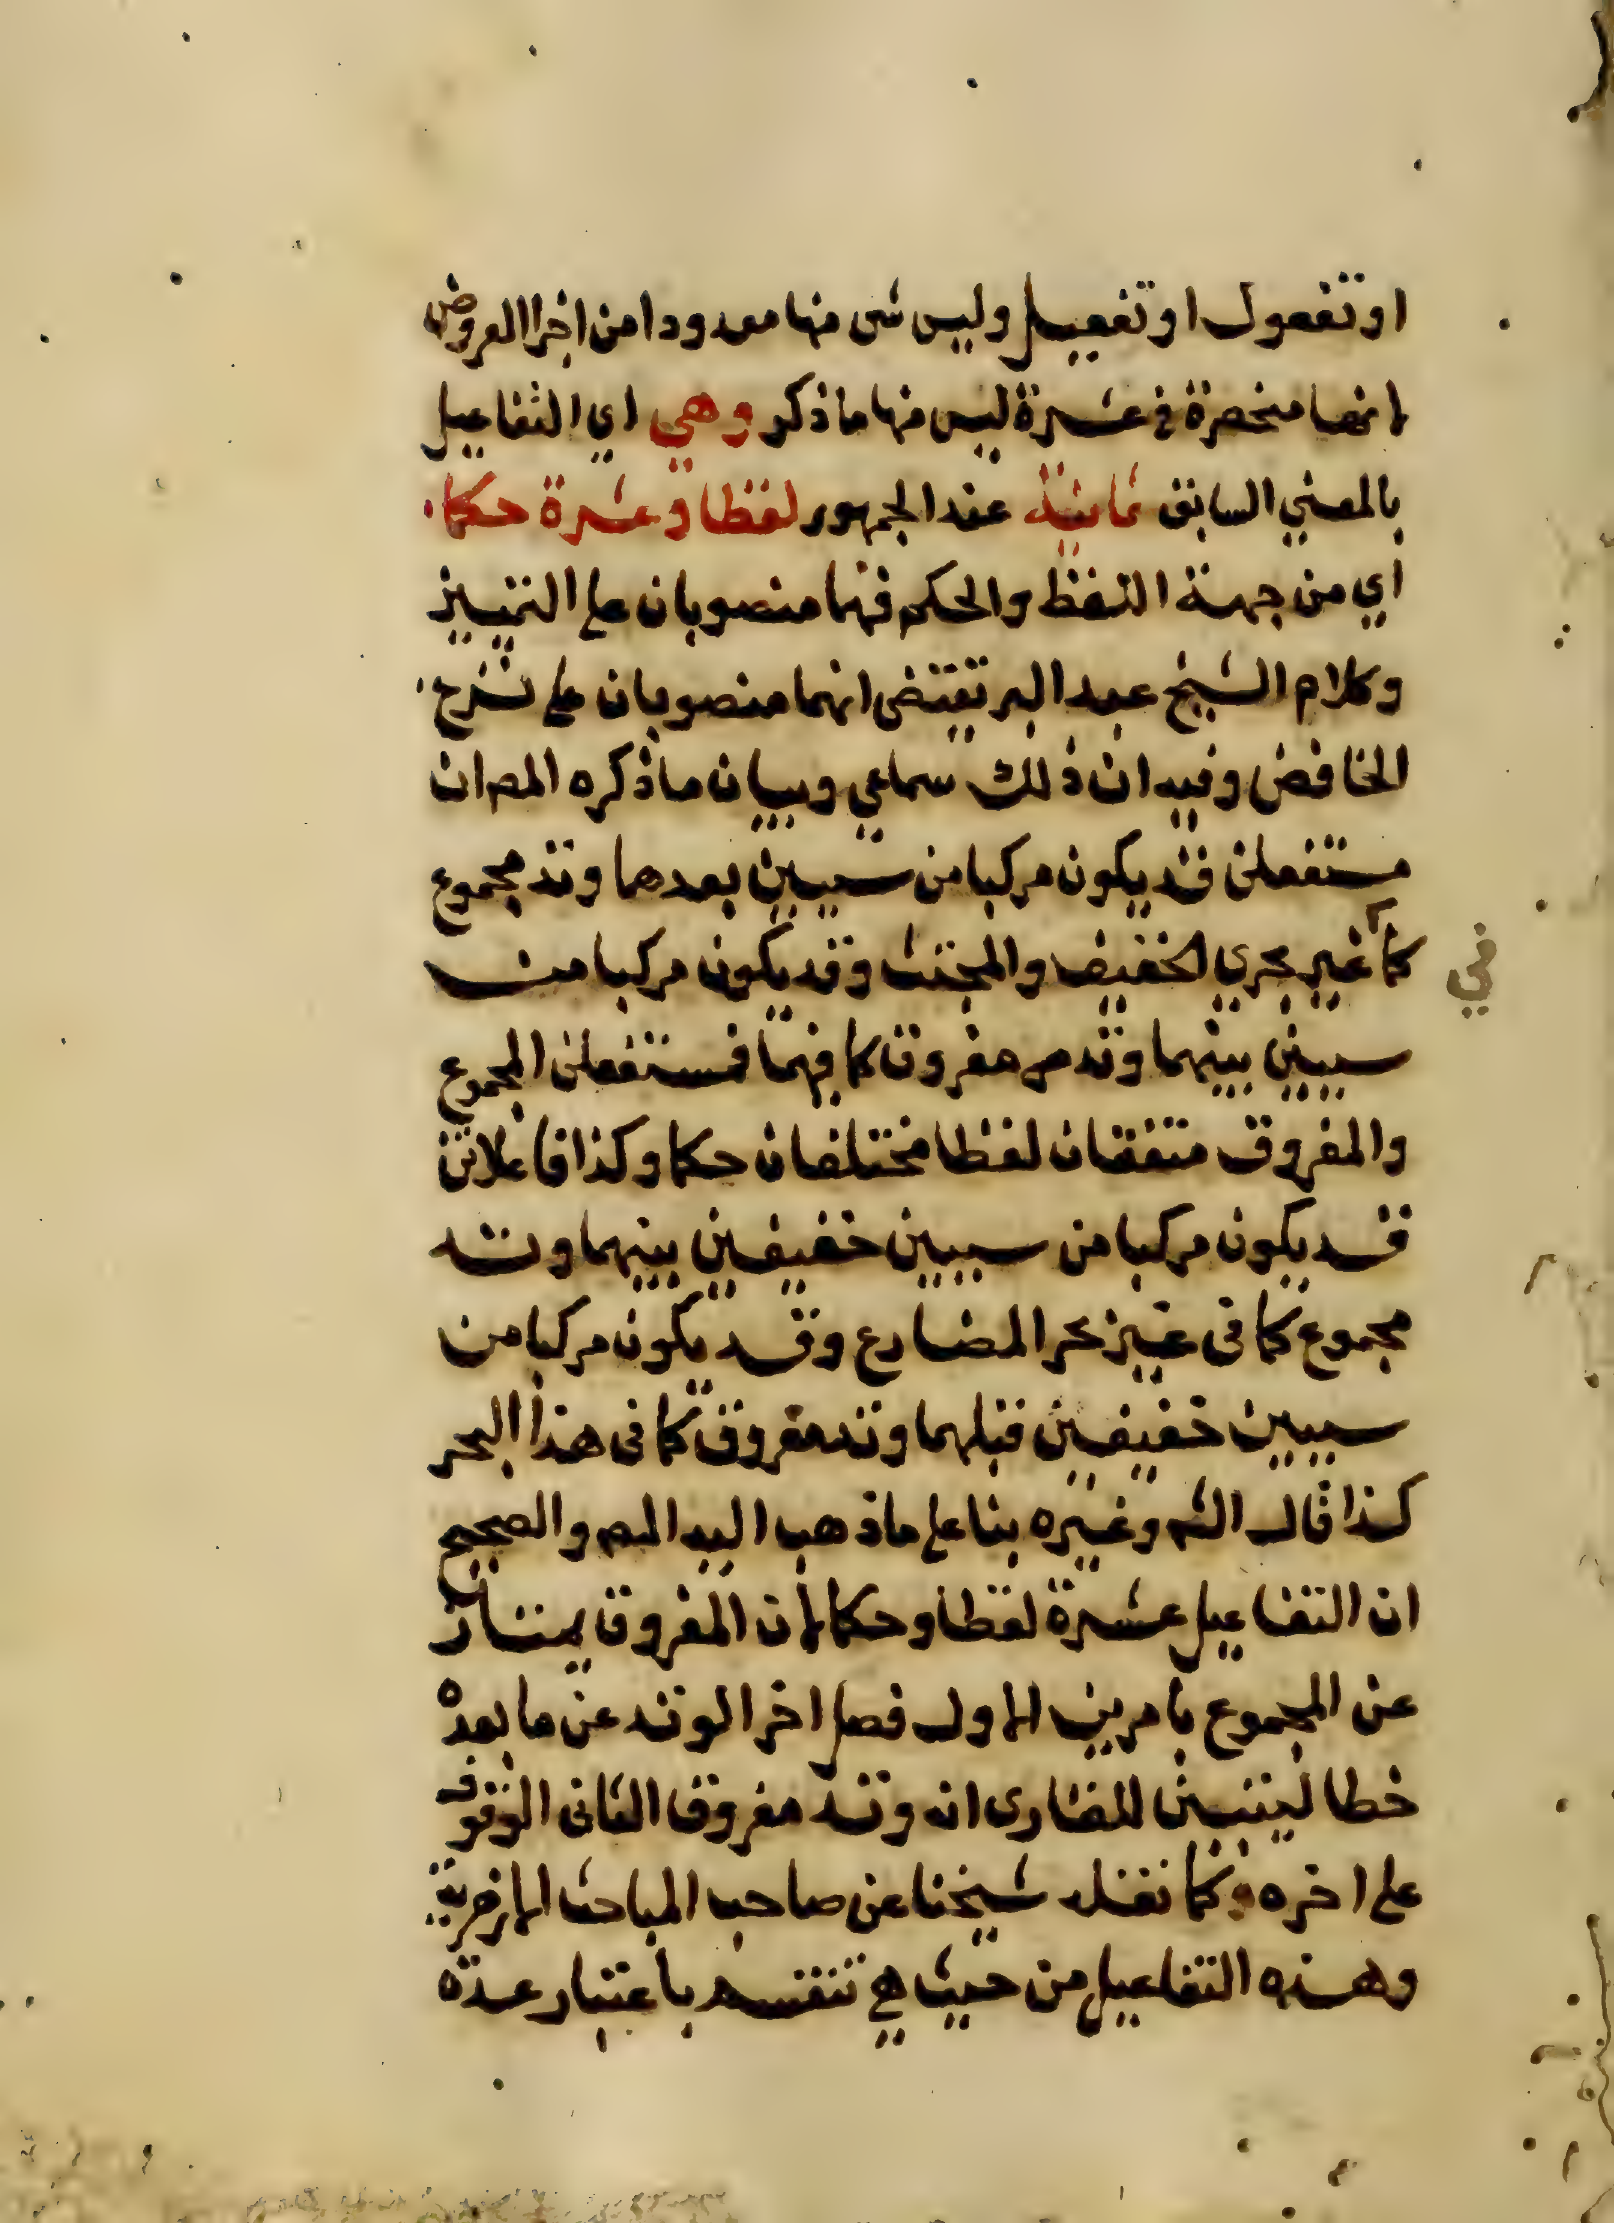 او تفعول او تفعيل وليس شى منها معدودا من اجزا العروض
لانها منحصرة في عشرة ليس منها ما ذكر وهي اي التفاعيل
بالمعني السابق ثمانية عند الجمهور لفظا وعشرة حكما
اي من جهة اللفظ والحكم فهما منصوبان علي التمييز
وكلام الشيخ عبد البر يقتضى انهما منصوبان علي نزع
الخافض وفيه ان ذلك سماعي وبيان ما ذكره المص ان
مستفعلن قد يكون مركبا من سببين بعدهما وتد مجموع
كما غير بحري الخفيف والمجتث وقد يكون مركبا من
في
سببين بينهما وتد مفروق كما فيهما فمستفعلن المجموع
والمفروق متفقان لفظا مختلفان حكما وكذا فاعلاتن
قد يكون مركبا من سببين خفيفين بينهما وتد
مجموع كما فى غير بحر المضارع وقد يكون مركبا من
سببين خفيفين قبلهما وتد مفروق كما فى هذا البحر
كذا قال الش وغيره بنا علي ما ذهب اليه المص والصحيح
ان التفاعيل عشرة لفظا وحكما لان المفروق يمتاز
عن المجموع بامرين الاول فصل اخر الوتد عن ما بعده
خطا ليتبين للقارى انه وتد مفروق الثانى الوقوف
علي اخره كما نقله شيخنا عن صاحب المباحث الازهرية
وهذه التفاعيل من حيث هي تنقسم باعتبار عدة